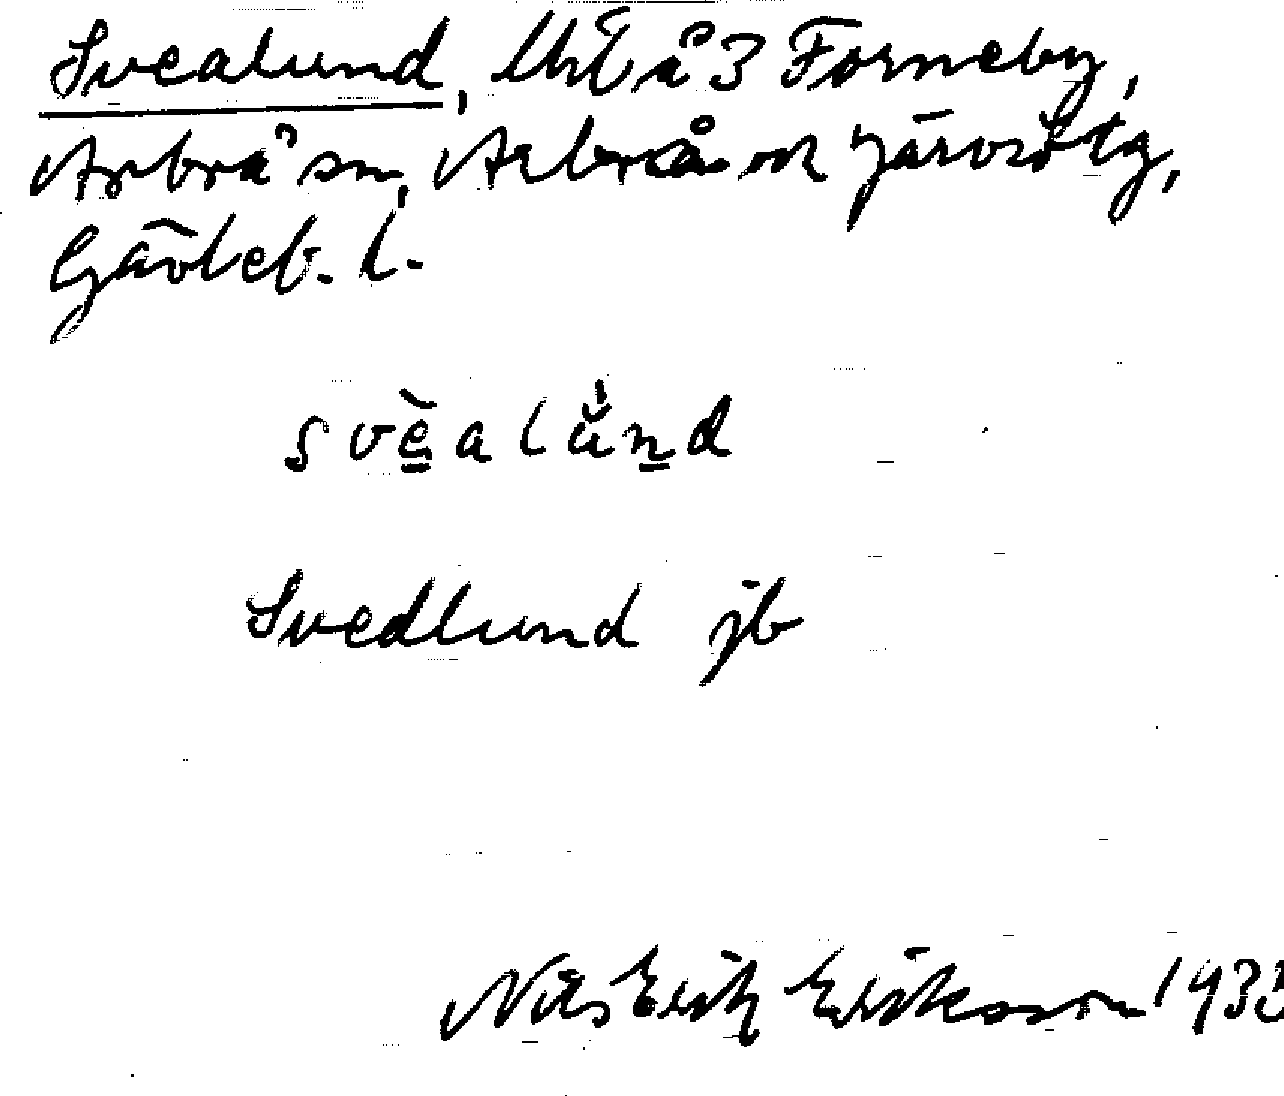 Svealund, lht å 3 Forneby,
Arbrå sn, Arbrå och Järvsö tg,
Gävleb. l.
svèalŭ́nd
Svedlund jb
Nils Erik Eriksson 193